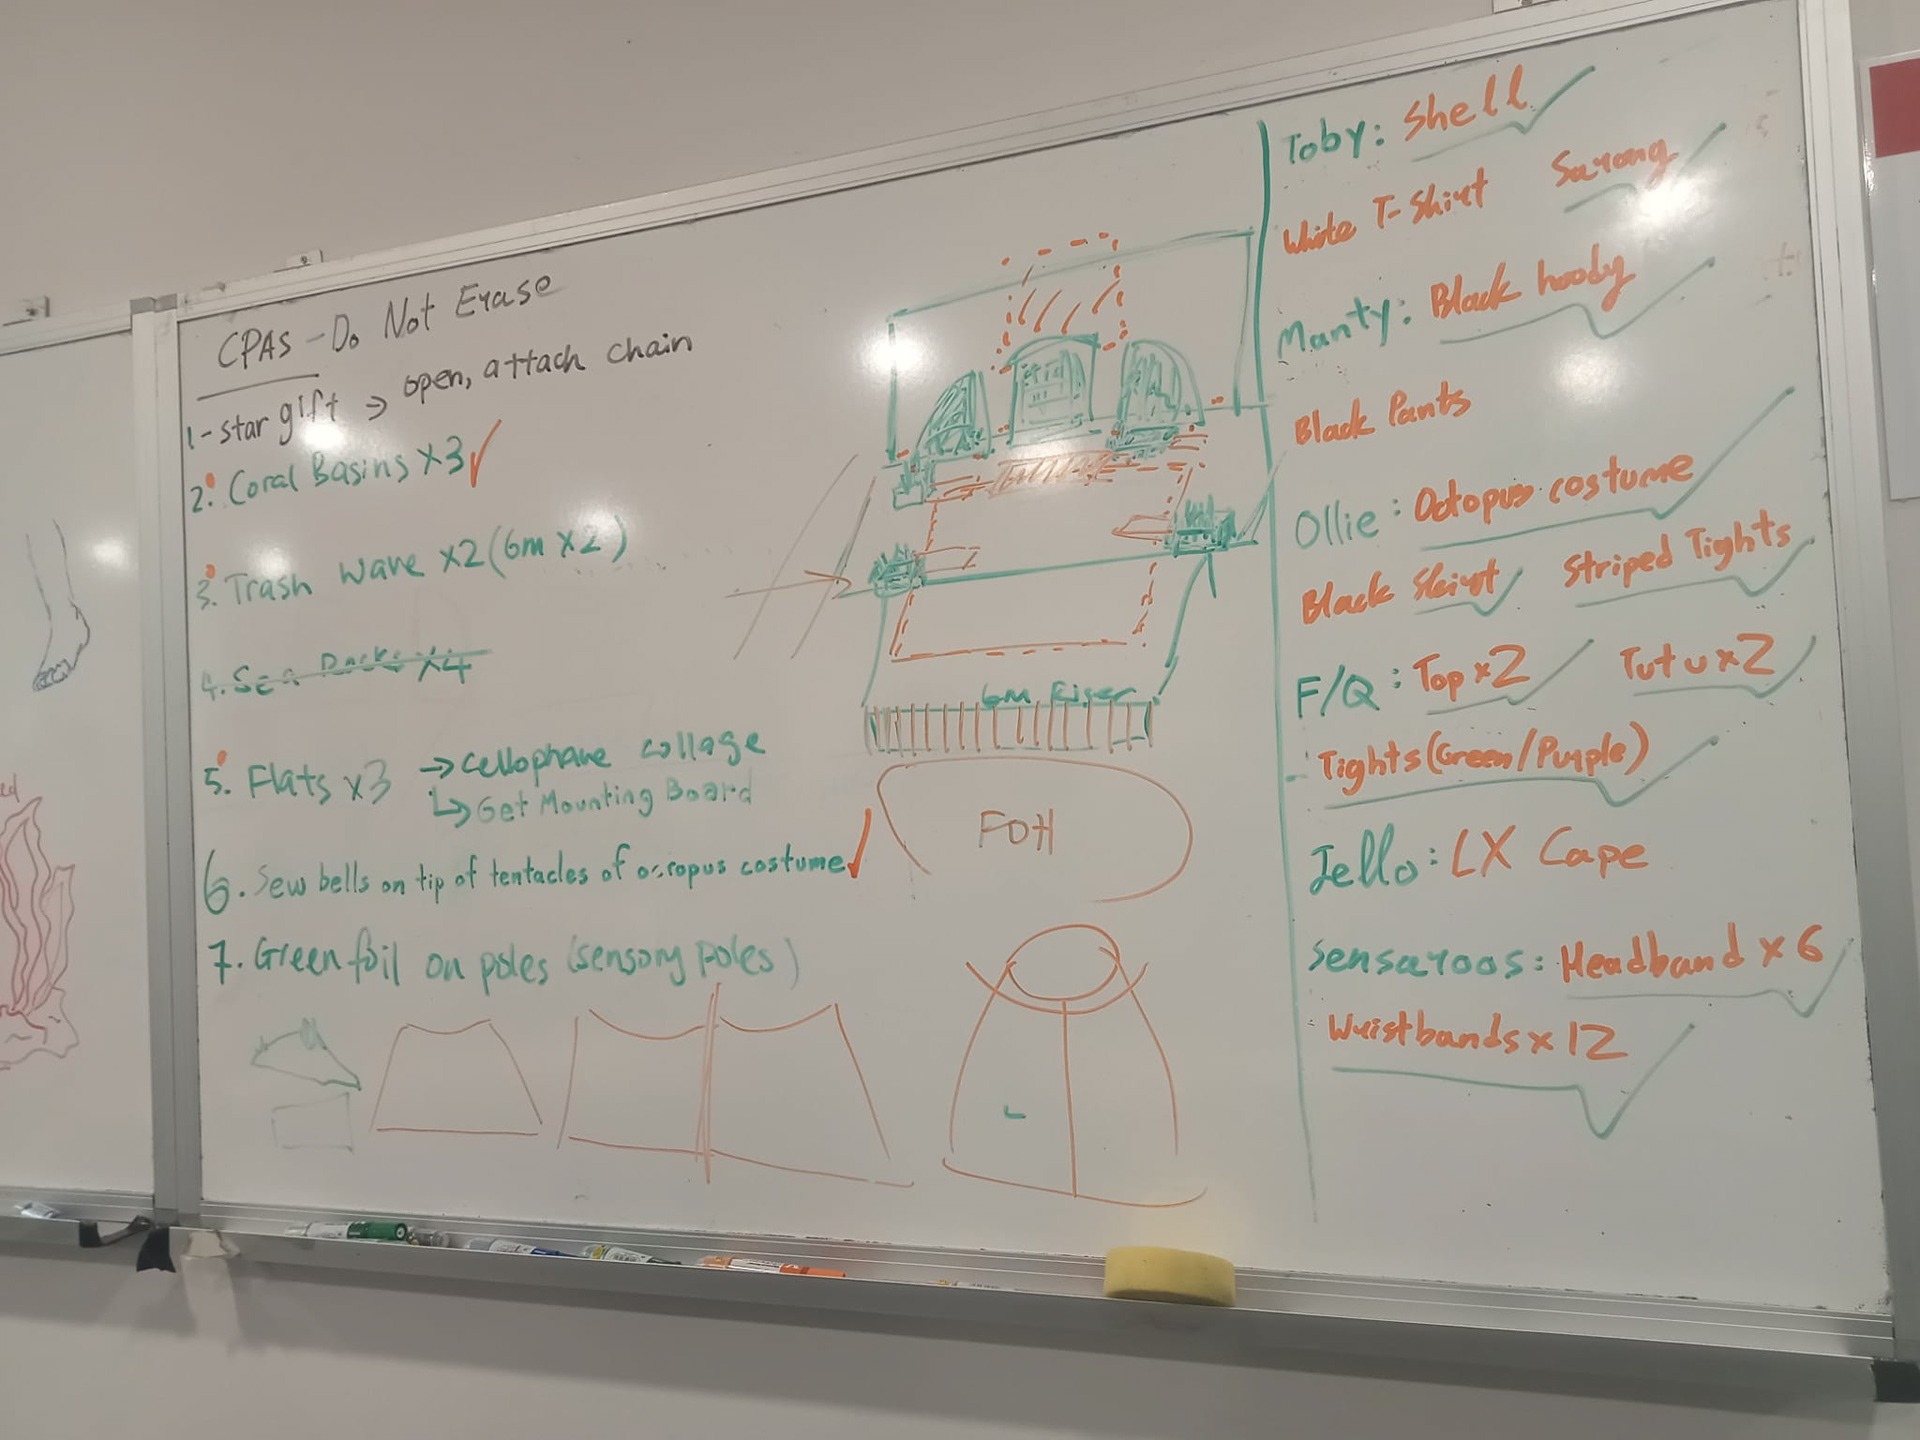 CPAS - Do Not Erase
1- star gift → open, attach chain
2. Coral Basins x3 ✓
3. Trash Wave x2 (6m x2)
4. Sea Rocks x4
5. Flats x3 → Cellophane collage
↳ Get Mounting Board
6. Sew bells on tip of tentacles of octopus costume ✓
7. Green foil on poles (sensory poles)
6m Riser
FOH
Toby: Shell ✓
White T-Shirt Sarong ✓
Manty: Black hoody ✓
Black Pants
Ollie: Octopus costume ✓
Black Skirt ✓ Striped Tights ✓
F/Q: Top x2 ✓ Tutu x2 ✓
Tights (Green/Purple) ✓
Jello: LX Cape
Sensaroos: Headband x 6 ✓
Wristbands x 12 ✓